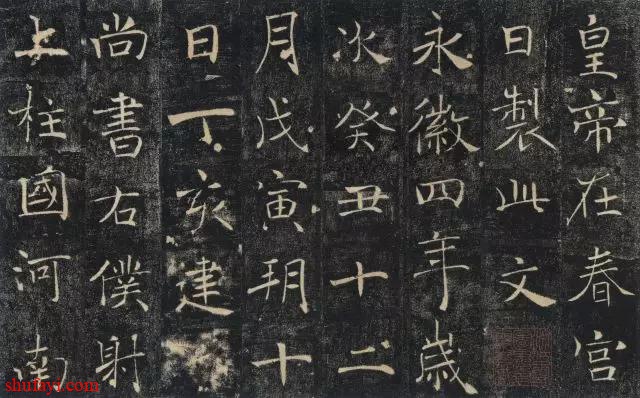 皇帝在春宮
日製此文
永徽四年歲
次癸丑十二
月戊寅朔十
日丁亥建
尚書右僕射
上柱國河南
shufayi.com